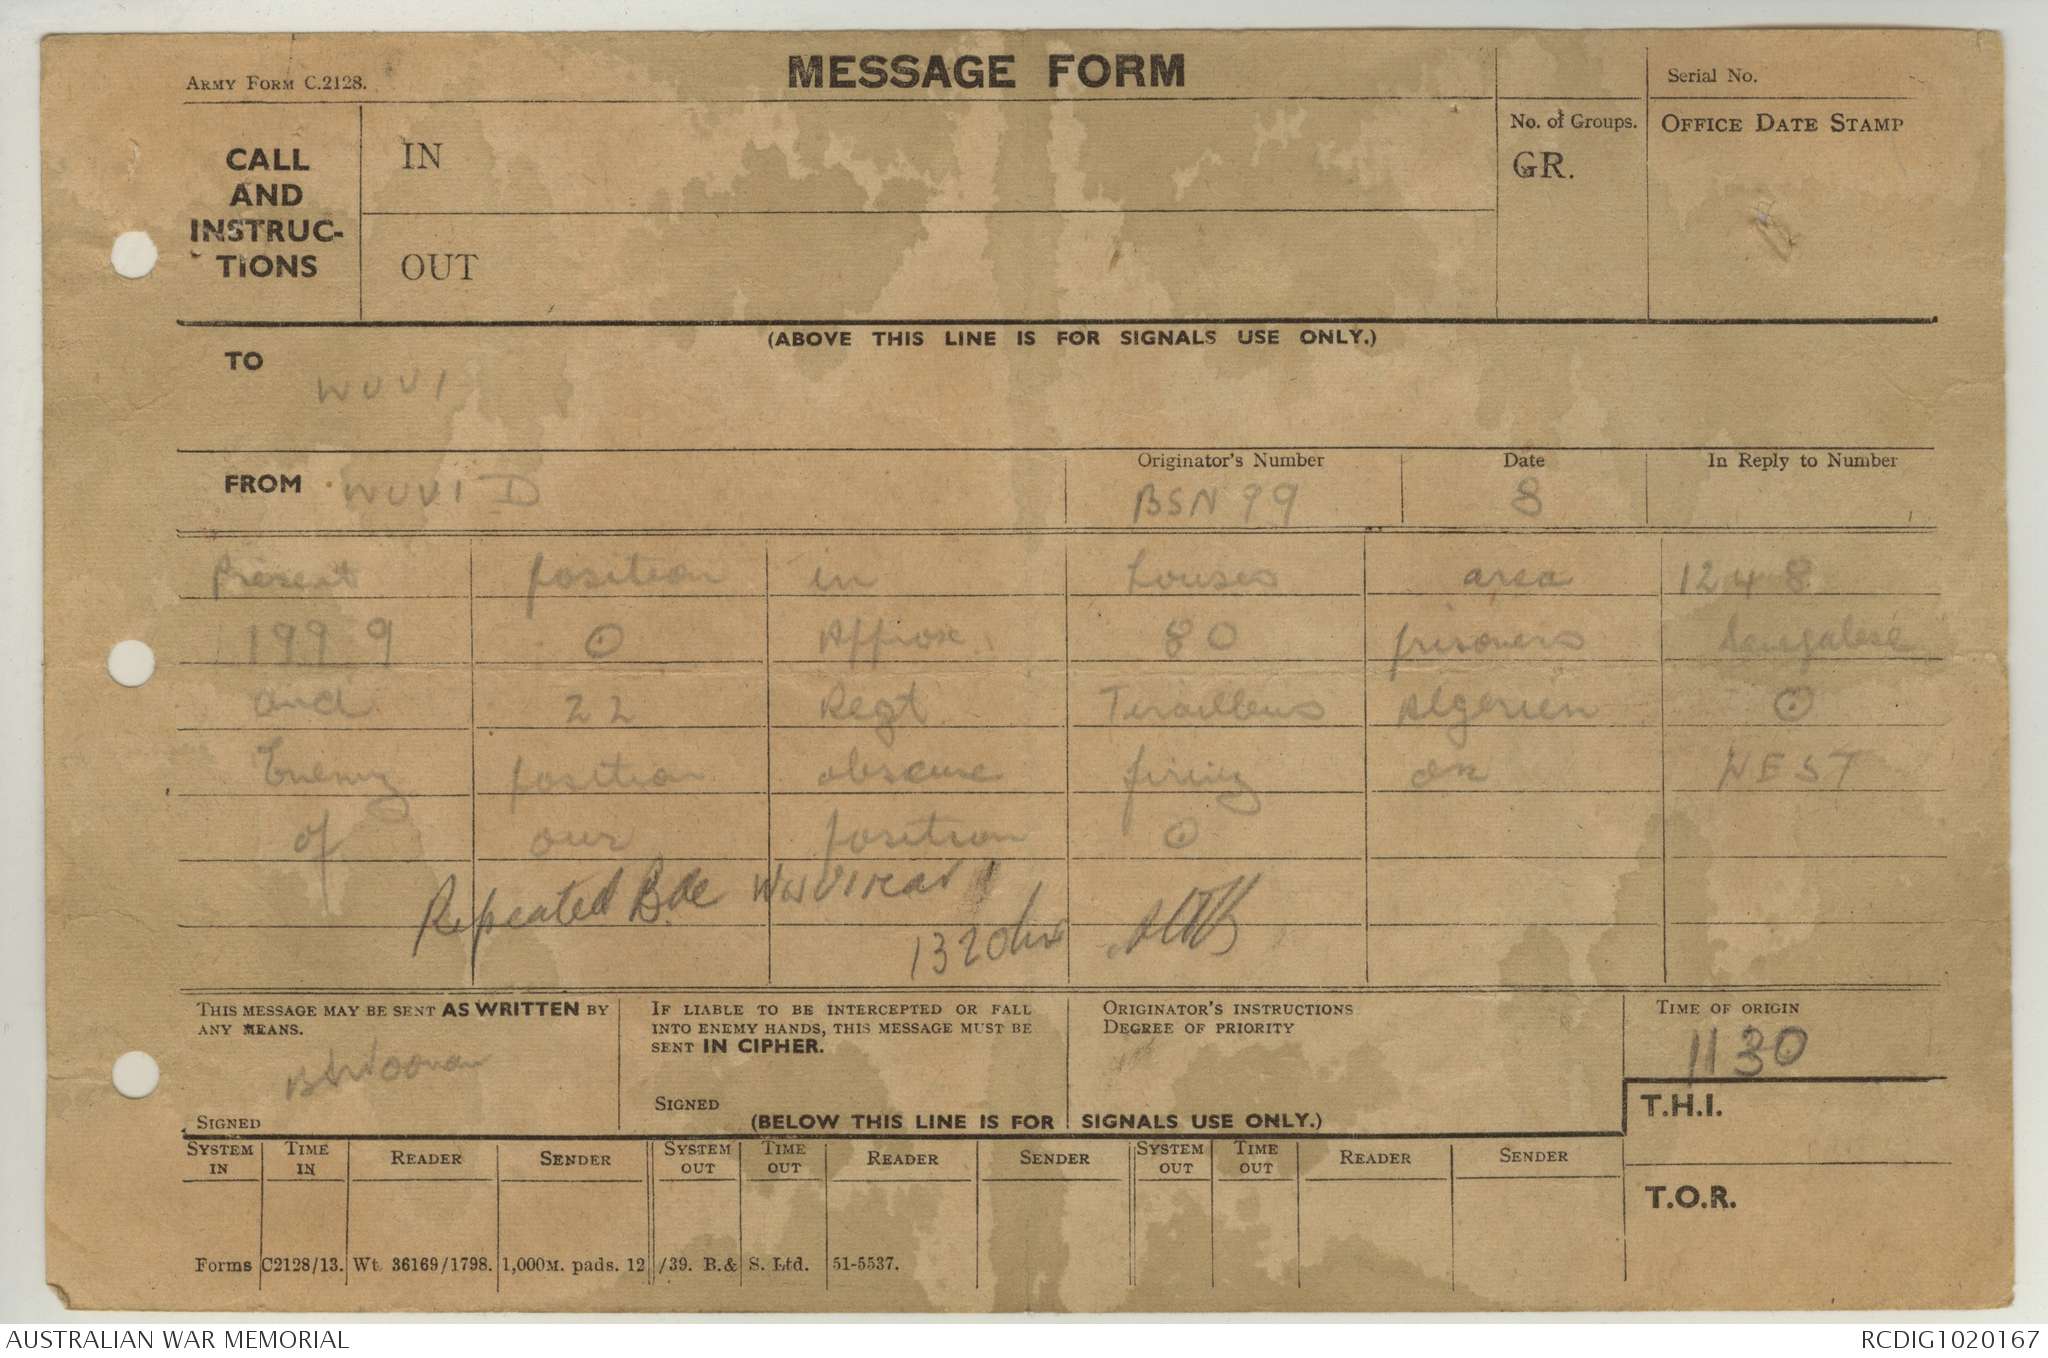 ARMY FORM C.2128.
MESSAGE FORM
Serial No.
CALL AND INSTRUC-TIONS
IN
OUT
No. of Groups.
GR.
OFFICE DATE STAMP
(ABOVE THIS LINE IS FOR SIGNALS USE ONLY.)
TO
WUVI
FROM WUVI D
Originator's Number
BSN 99
Date
8
In Reply to Number
Present position in houses area 1248
1999 ⊙ Approx 80 prisoners
and 22 Regt Algerien ⊙
Enemy position obscure firing on WEST
of our position ⊙
Repeated Bde WUVI rear
1320 hrs
THIS MESSAGE MAY BE SENT AS WRITTEN BY ANY MEANS.
SIGNED
IF LIABLE TO BE INTERCEPTED OR FALL INTO ENEMY HANDS, THIS MESSAGE MUST BE SENT IN CIPHER.
SIGNED
ORIGINATOR'S INSTRUCTIONS
DEGREE OF PRIORITY
TIME OF ORIGIN
1130
T.H.I.
T.O.R.
(BELOW THIS LINE IS FOR SIGNALS USE ONLY.)
SYSTEM IN TIME IN READER SENDER SYSTEM OUT TIME OUT READER SENDER SYSTEM OUT TIME OUT READER SENDER
Forms C2128/13. Wt. 36169/1798. 1,000M. pads. 12/39. B.& S. Ltd. 51-5537.
AUSTRALIAN WAR MEMORIAL
RCDIG1020167